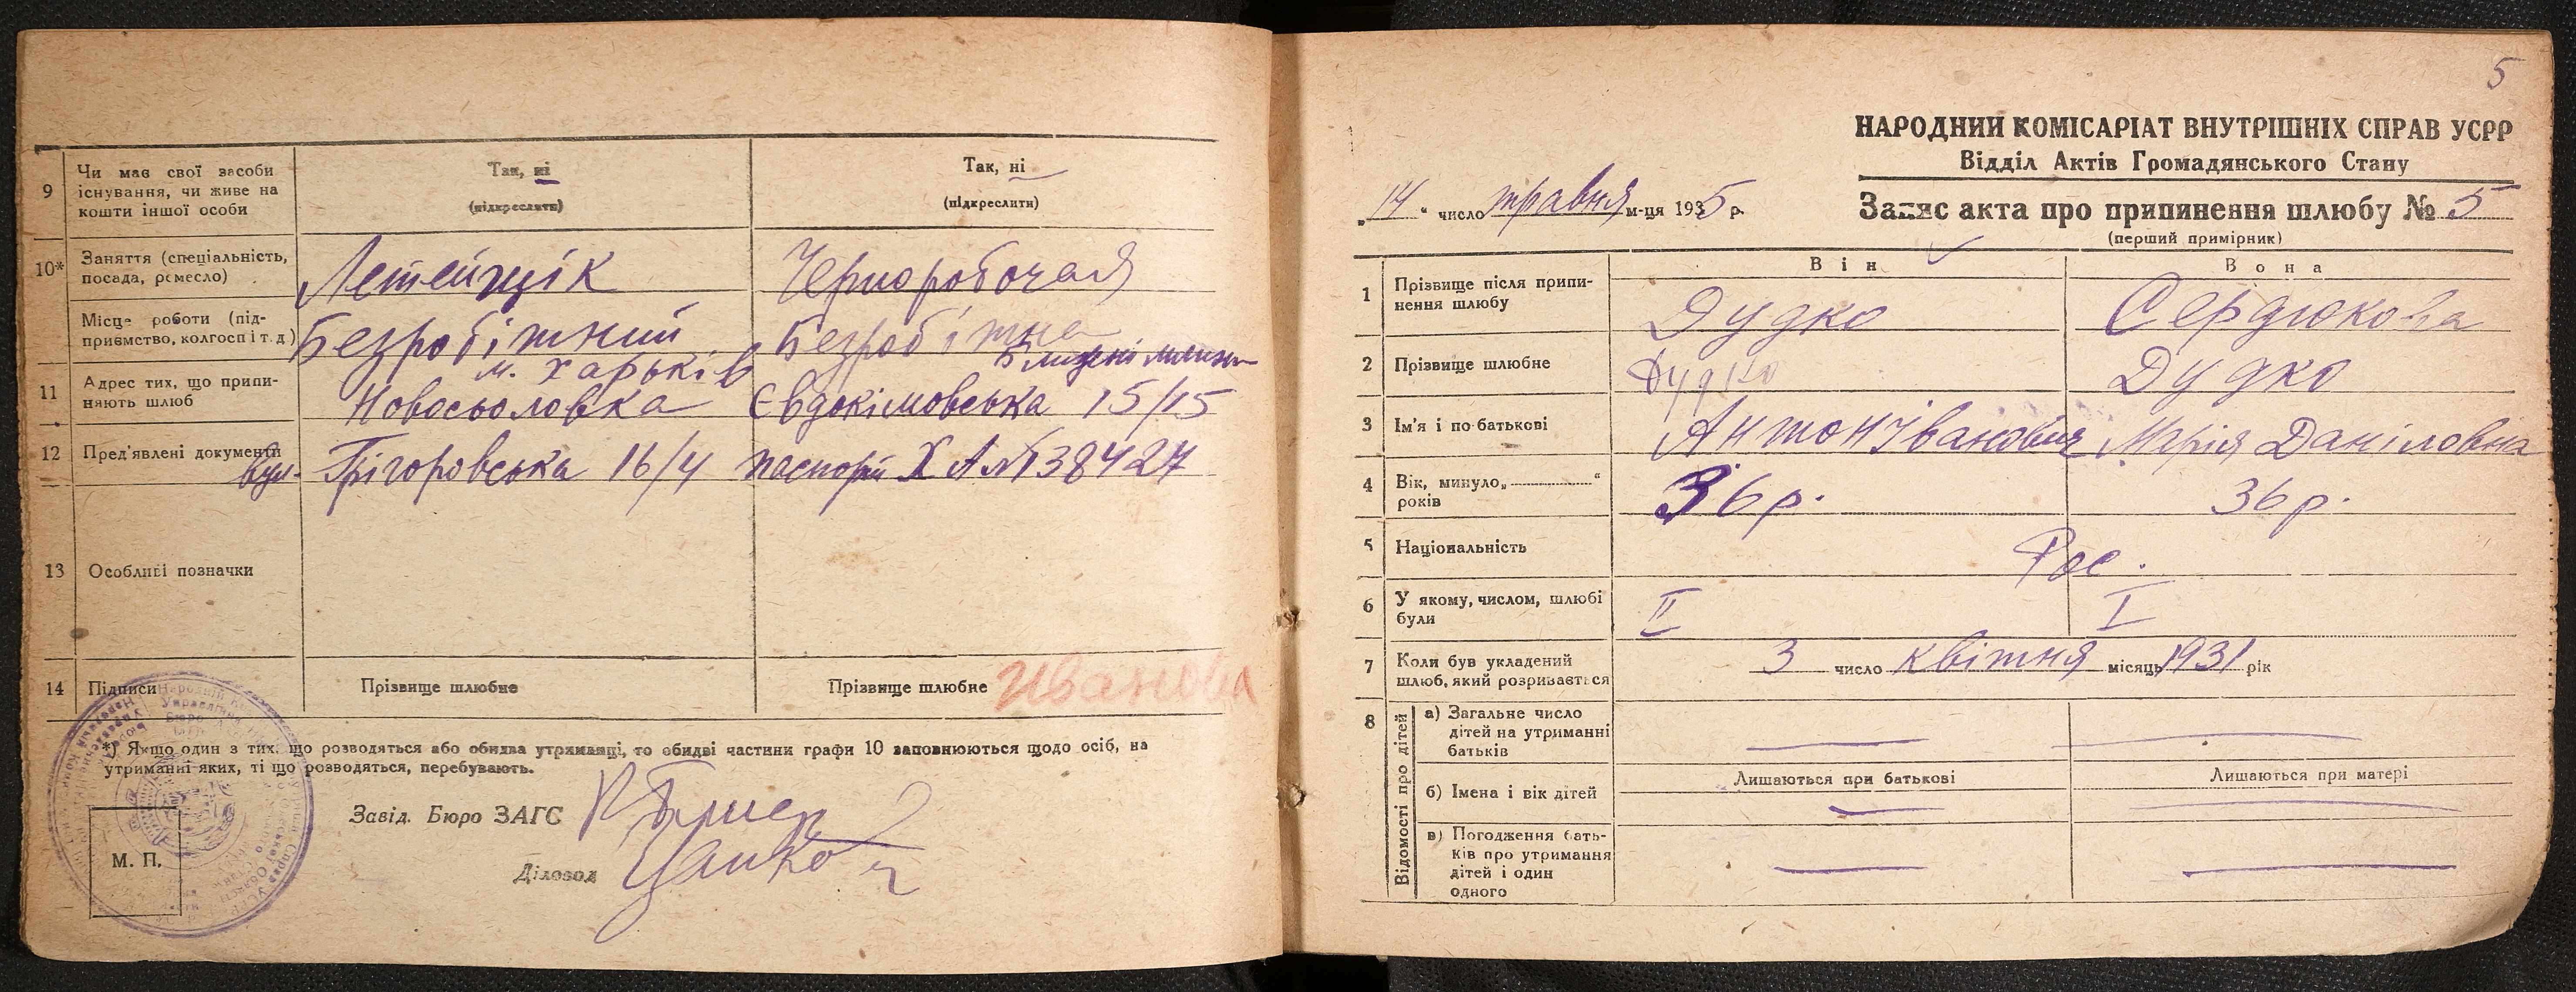 9
Чи має свої засоби
існування, чи живе на
кошти іншої особи
Так, ні
(підкреслити)
Так, ні
(підкреслити)
10*
Заняття (спеціальність,
посада, ремесло)
Летейщік
Черноробочая
Місце роботи (під-
приємство, колгосп і т. д)
Безробітний
Безробітна
11
Адрес тих, що припи-
няють шлюб
м. Харьків
Новосьоловка
Євдокімовська 15/15
12
Пред'явлені документи
вул. Грігоровська 16/4
паспорт Х А № 138427
13
Особливі позначки
14
Підписи
Прізвище шлюбне
Прізвище шлюбне Иванова
*) Якщо один з тих, що розводяться або обидва утриманці, то обидві частини графи 10 заповнюються щодо осіб, на
утриманні яких, ті що розводяться, перебувають.
Завід. Бюро ЗАГС
Діловод
М. П.
5
НАРОДНИЙ КОМІСАРІАТ ВНУТРІШНІХ СПРАВ УСРР
Відділ Актів Громадянського Стану
„14“ число травня м-ця 1935 р.
Запис акта про припинення шлюбу № 5
(перший примірник)
Він
Вона
1
Прізвище після припи-
нення шлюбу
Дудко
Сердюкова
2
Прізвище шлюбне
Дудко
Дудко
3
Ім'я і по батькові
Антон Іванович
Марія Даніловна
4
Вік, минуло „ “
років
36 р.
36 р.
5
Національність
Рос.
6
У якому, числом, шлюбі
були
II
I
7
Коли був укладений
шлюб, який розривається
3 число квітня місяць 1931 рік
8
Відомості про дітей
а) Загальне число
дітей на утриманні
батьків
Лишаються при батькові
Лишаються при матері
б) Імена і вік дітей
в) Погодження бать-
ків про утримання
дітей і один
одного